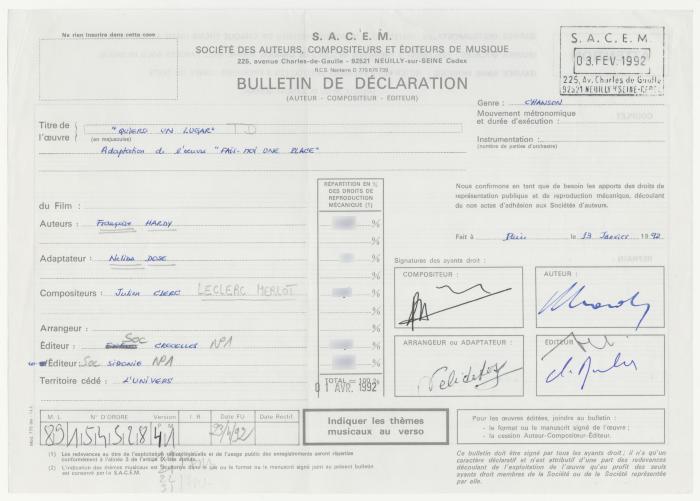 Ne rien inscrire dans cette case
S. A. C. E. M.
SOCIÉTÉ DES AUTEURS, COMPOSITEURS ET ÉDITEURS DE MUSIQUE
225, avenue Charles-de-Gaulle - 92521 NEUILLY-sur-SEINE Cedex
R.C.S. Nanterre D 775 675 739
BULLETIN DE DÉCLARATION
(AUTEUR - COMPOSITEUR - ÉDITEUR)
S. A. C. E. M.
03. FEV. 1992
225, Av. Charles de Gaulle
92521 NEUILLY S/SEINE - CEDEX
Genre : CHANSON
Mouvement métronomique
et durée d'exécution :
Instrumentation :
(nombre de parties d'orchestre)
Titre de
l'œuvre
(en majuscules)
"QUIERO UN LUGAR" TD
Adaptation de l'œuvre "FAIS-MOI UNE PLACE"
RÉPARTITION EN %
DES DROITS DE
REPRODUCTION
MÉCANIQUE (1)
Nous confirmons en tant que de besoin les apports des droits de
représentation publique et de reproduction mécanique, découlant
de nos actes d'adhésion aux Sociétés d'auteurs.
du Film :
Auteurs : Françoise HARDY %
Fait à Paris le 13 Janvier 1992
Adaptateur : Nelida DOSE %
Signatures des ayants droit :
COMPOSITEUR :
AUTEUR :
Compositeurs : Julien CLERC LECLERC MERLOT %
Arrangeur : %
Éditeur : Soc CRECELLES NPA %
Éditeur : Soc SIDONIE NPA %
Territoire cédé : L'UNIVERS
TOTAL = 100 %
01 AVR. 1992
ARRANGEUR ou ADAPTATEUR :
ÉDITEUR
M. L N° D'ORDRE Version I R Date FU Date Rectif
Indiquer les thèmes
musicaux au verso
Pour les œuvres éditées, joindre au bulletin :
- le format ou le manuscrit signé de l'œuvre ;
- la cession Auteur-Compositeur-Éditeur.
(1) Les redevances au titre de l'exploitation radiotélévisuelle et de l'usage public des enregistrements seront réparties
conformément à l'alinéa 3 de l'article
(2) L'indication des thèmes musicaux est dans le cas où le format ou le manuscrit signé joint au présent bulletin
est conservé par la S.A.C.E.M.
Ce bulletin doit être signé par tous les ayants droit ; il n'a qu'un
caractère déclaratif et n'est attributif d'une part des redevances
découlant de l'exploitation de l'œuvre qu'au profit des seuls
ayants droit membres de la Société ou de la Société représentée
par elle.